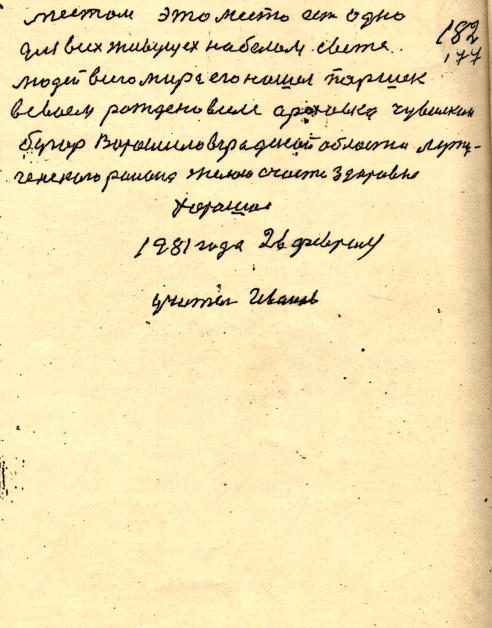 местом это место ест одно
182
177
для всих живущех на белом свете.
людей всего мира его нашол Паршек
всвоем рождением селе ореховка чувилкин
бугор Ворошиловградской области Луту-
генского района желаю счастя здоровие
хорошие
1981 года 26 феврал
учител Иванов